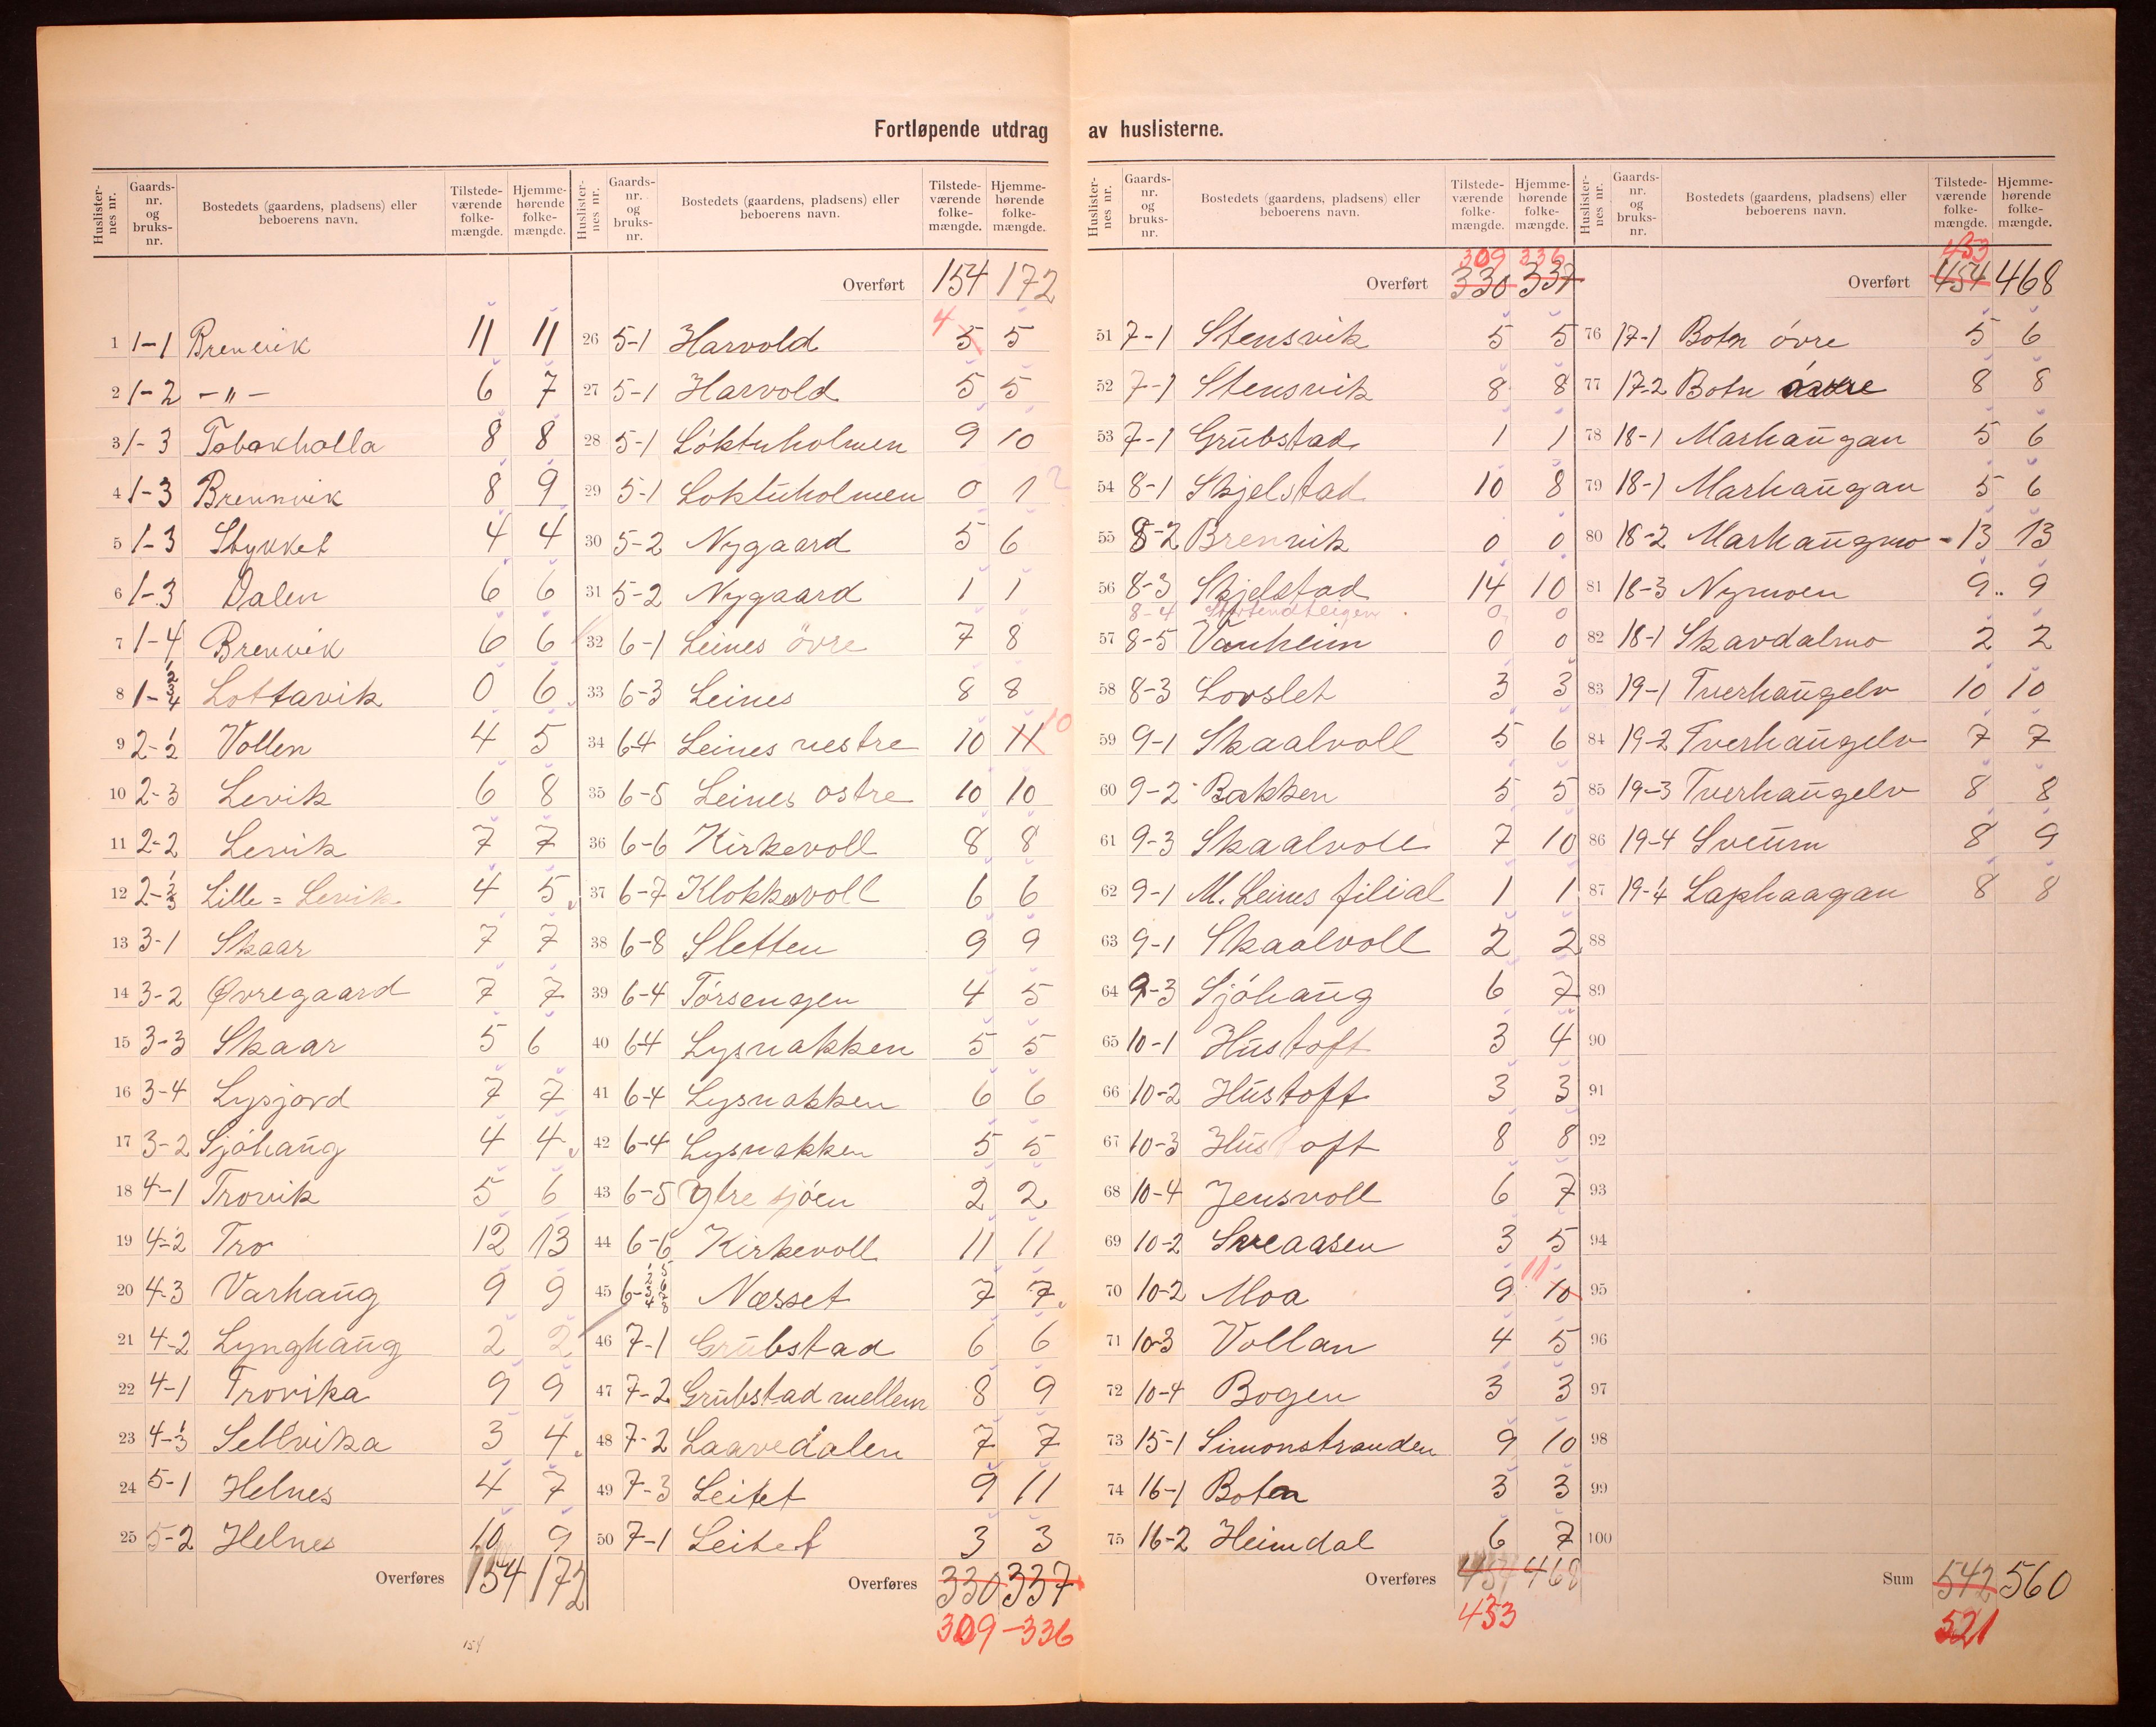 Fortløpende utdrag av huslisterne.
Huslister-nes nr. Gaards-nr. og bruks-nr. Bostedets (gaardens, pladsens) eller beboerens navn. Tilstede-værende folke-mængde. Hjemme-hørende folke-mængde.
1 1-1 Brenvik 11 11
2 1-2 -"- 6 7
3 1-3 Tobakholla 8 8
4 1-3 Brennvik 8 9
5 1-3 Stykket 4 4
6 1-3 Dalen 6 6
7 1-4 Brenvik 6 6
8 1-1/2/3/4 Lottavik 0 6
9 2-1/2 Vollen 4 5
10 2-3 Levik 6 8
11 2-2 Levik 7 7
12 2-1/2/3 Lille = Levik 4 5
13 3-1 Skaar 7 7
14 3-2 Øvregaard 7 7
15 3-3 Skaar 5 6
16 3-4 Lysjord 7 7
17 3-2 Sjöhaug 4 4
18 4-1 Trovik 5 6
19 4-2 Tro 12 13
20 4-3 Varhaug 9 9
21 4-2 Lynghaug 2 2
22 4-1 Trovika 9 9
23 4-1/3 Sellvika 3 4
24 5-1 Helnes 4 7
25 5-2 Helnes 10 9
Overføres 154 172
154
Huslister-nes nr. Gaards-nr. og bruks-nr. Bostedets (gaardens, pladsens) eller beboerens navn. Tilstede-værende folke-mængde. Hjemme-hørende folke-mængde.
Overført 154 172
26 5-1 Harvold 4 5 5
27 5-1 Harvold 5 5
28 5-1 Löktuholmen 9 10
29 5-1 Loktuholmen 0 1 2
30 5-2 Nygaard 5 6
31 5-2 Nygaard 1 1
32 6-1 Leines övre 7 8
33 6-3 Leines 8 8
34 6-4 Leines vestre 10 11 10
35 6-5 Leines ostre 10 10
36 6-6 Kirkevoll 8 8
37 6-7 Klokkevoll 6 6
38 6-8 Sletten 9 9
39 6-4 Törsengen 4 5
40 6-4 Lysnakken 5 5
41 6-4 Lysnakken 6 6
42 6-4 Lysnakken 5 5
43 6-5 Ytre sjöen 2 2
44 6-6 Kirkevoll 11 11
45 6-1/2/3/4 5/6/7/8 Næsset 7 7
46 7-1 Grubstad 6 6
47 7-2 Grubstad mellem 8 9
48 7-2 Laavedalen 7 7
49 7-3 Leitet 9 11
50 7-1 Leitet 3 3
Overføres 330 337
309 - 336
Huslister-nes nr. Gaards-nr. og bruks-nr. Bostedets (gaardens, pladsens) eller beboerens navn. Tilstede-værende folke-mængde. Hjemme-hørende folke-mængde.
309 336
Overført 330 337
51 7-1 Stensvik 5 5
52 7-1 Stensvik 8 8
53 7-1 Grubstad 1 1
54 8-1 Skjelstad 10 8
55 8-2 Brenvik 0 0
56 8-3 Skjelstad 14 10
8-4 0 0
57 8-5 Vanheim 0 0
58 8-3 Lorslet 3 3
59 9-1 Skaalvoll 5 6
60 9-2 Bakken 5 5
61 9-3 Skaalvoll 7 10
62 9-1 M. Leines filial 1 1
63 9-1 Skaalvoll 2 2
64 9-3 Sjöhaug 6 7
65 10-1 Hustoft 3 4
66 10-2 Hustoft 3 3
67 10-3 Hustoft 8 8
68 10-4 Jensvoll 6 7
69 10-2 Sveaasen 3 5
70 10-2 Moa 9 11 10
71 10-3 Vollan 4 5
72 10-4 Bogen 3 3
73 15-1 Simonstranden 9 10
74 16-1 Boten 3 3
75 16-2 Heimdal 6 7
Overføres 454 468
453
Huslister-nes nr. Gaards-nr. og bruks-nr. Bostedets (gaardens, pladsens) eller beboerens navn. Tilstede-værende folke-mængde. Hjemme-hørende folke-mængde.
453
Overført 454 468
76 17-1 Botn övre 5 6
77 17-2 Botn 8 8
78 18-1 Marhaugan 5 6
79 18-1 Marhaugan 5 6
80 18-2 Marhaugmo - 13 13
81 18-3 Nymoen 9 9
82 18-1 Skavdalmo 2 2
83 19-1 Tverhaugelv 10 10
84 19-2 Tverhaugelv 7 7
85 19-3 Tverhaugelv 8 8
86 19-4 Sveum 8 9
87 19-4 Laphaagan 8 8
88
89
90
91
92
93
94
95
96
97
98
99
100
Sum 542 560
521